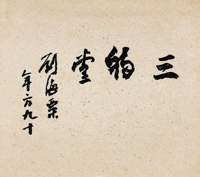 三堂
劉海粟
年方九十